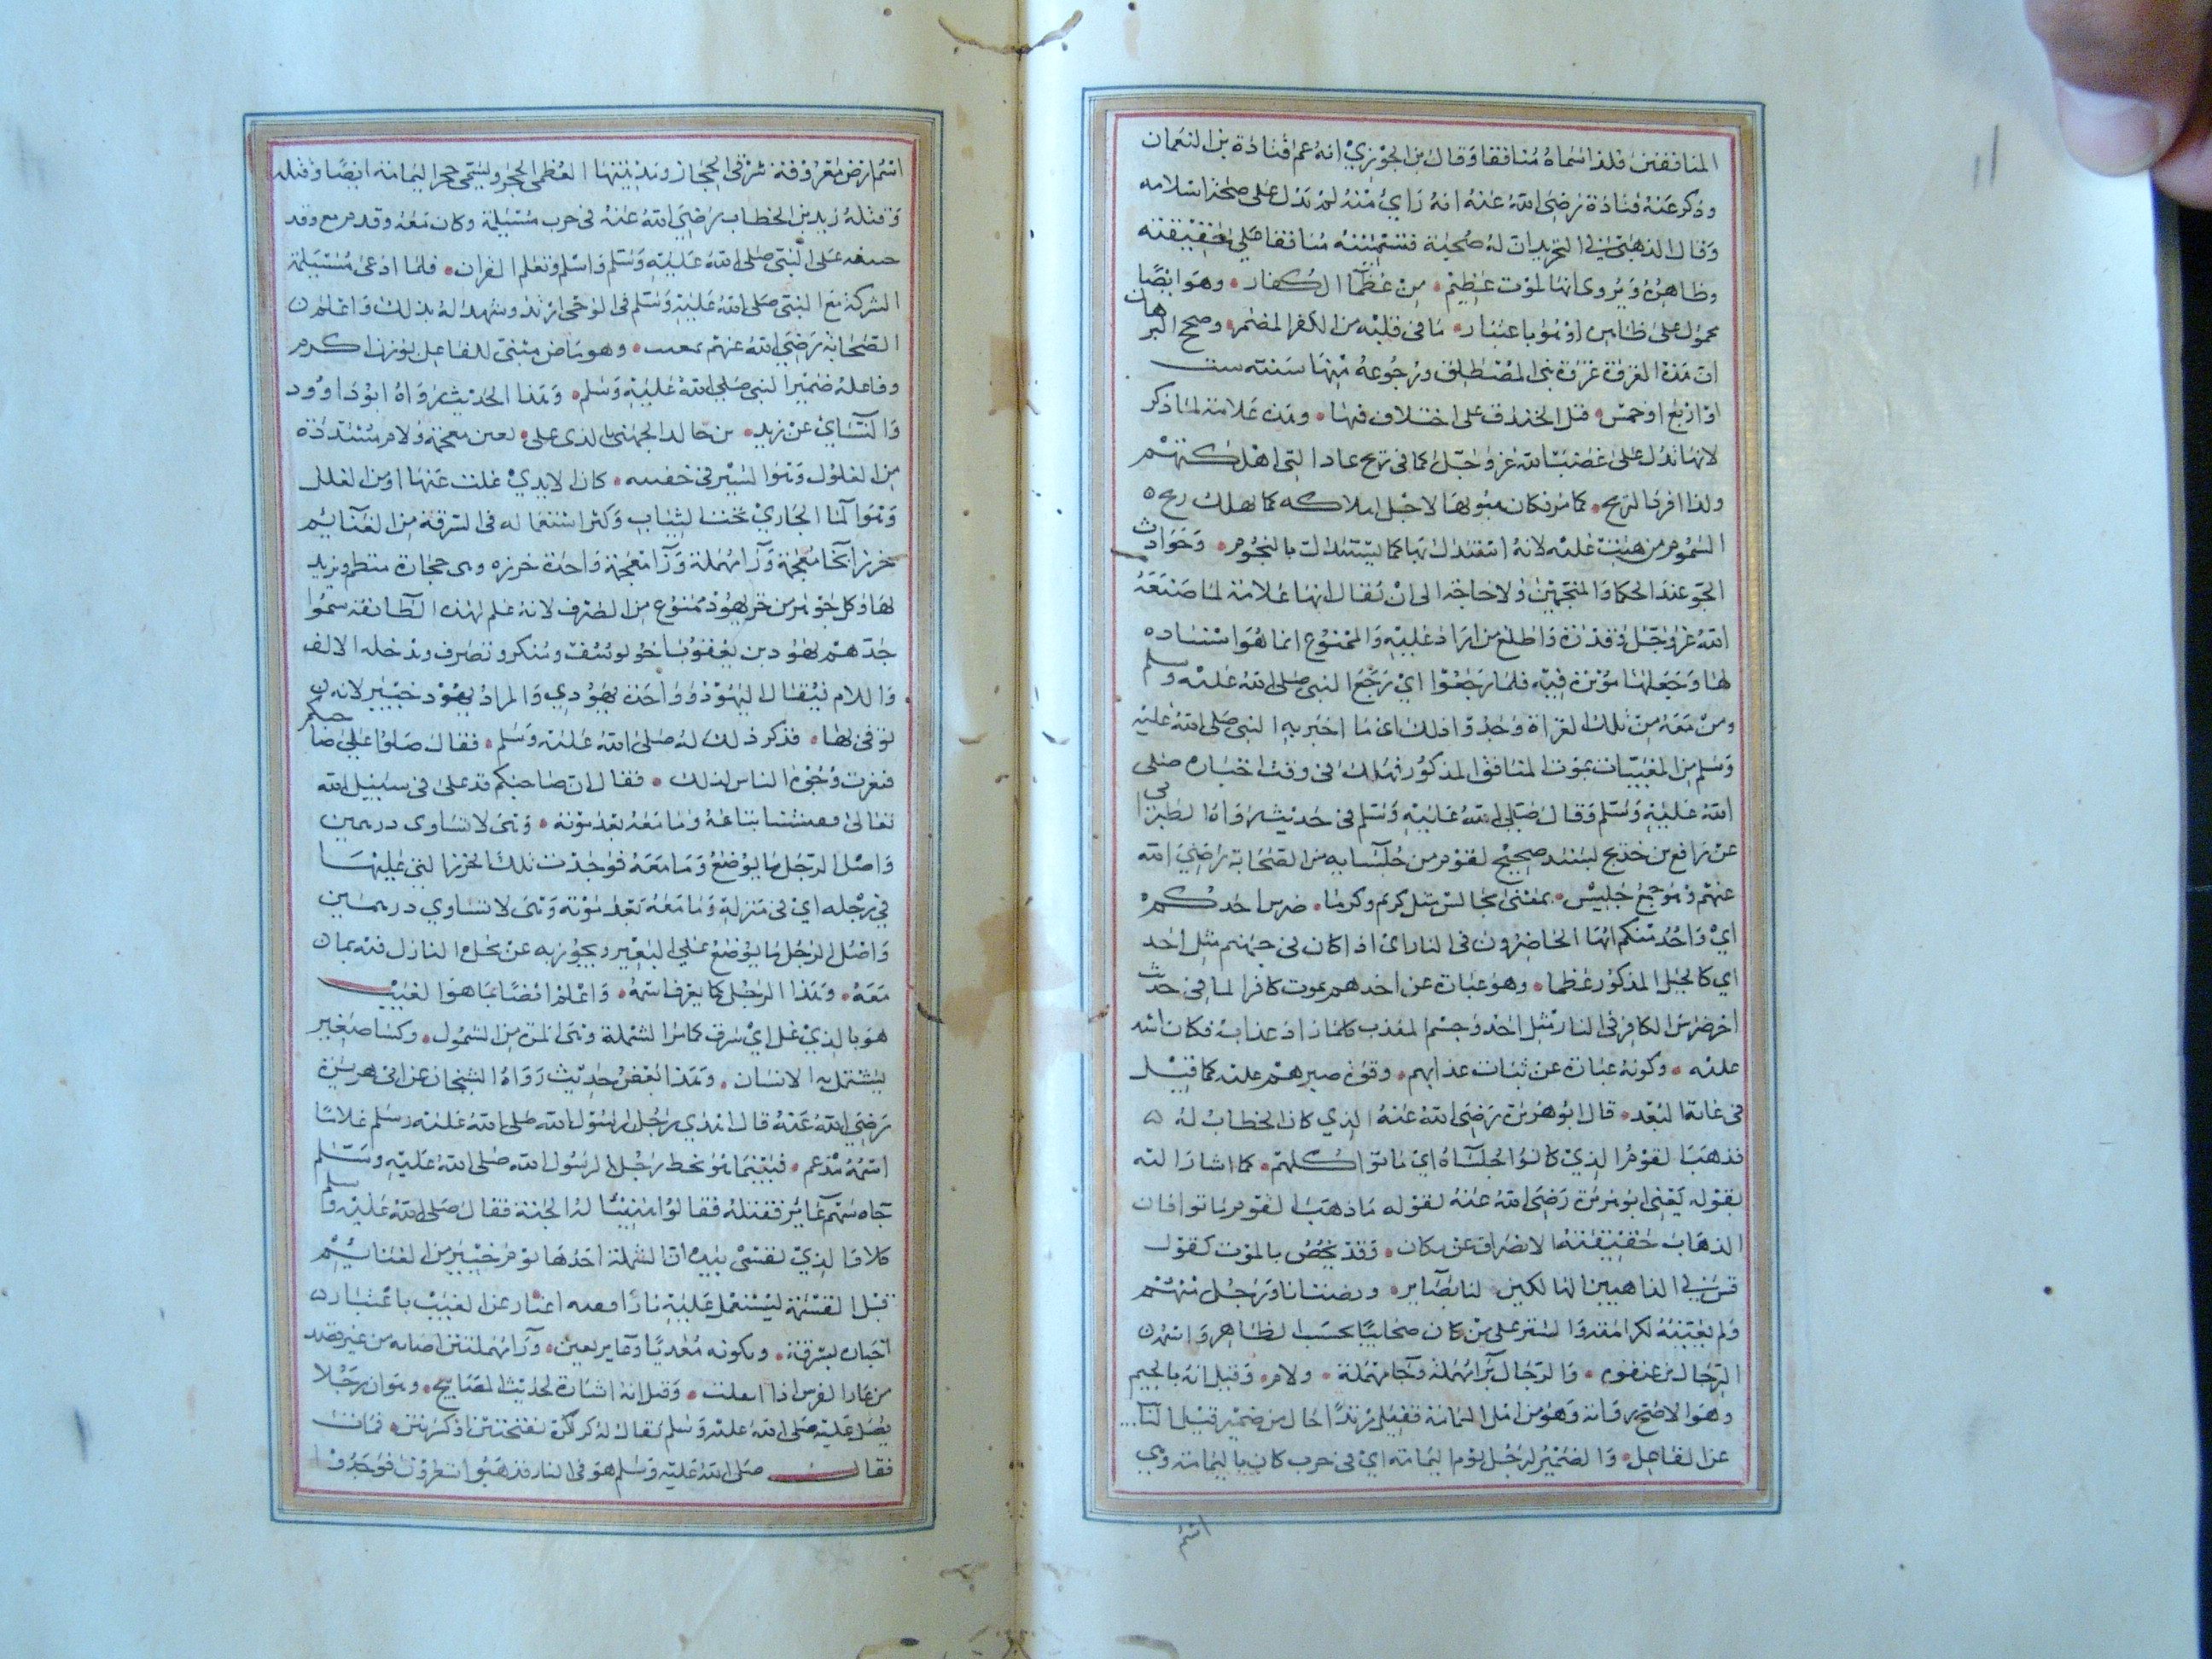 المنافقين فلذا سماه منافقا وقال بن الجوزي انه عم قتادة بن النعمان
وذكر عنه قتادة رضي الله عنه انه رأي منه لم تدل على صحة اسلامه
وقال الذهبي في التجريد ان له صحبة فتسميته منافقا علي حقيقته
وظاهره ويروى انها لموت عظيم من عظماء الكفار وهو ايضا
محمول على ظاهره او مؤ باعتبار ما في قلبه من الكفر المضمر وصحح البرهان
ان هذه الغزوة غزوة بني المصطلق ورجوعه منها سنة ست
او اربع او خمس قبل الخندق على اختلاف فيها وهذه علامة لما ذكر
لانها تدل على غضب الله عز وجل كما في ريح عاد التي اهلكتهم
ولذا افرد الريح كما مر فكان هبوبها لاجل اهلاكه كما يهلك ريح
السموم من هبت عليه لانه استدل بها كما يستدل بالنجوم وحوادث
الجو عند الحكما والمنجمين ولا حاجة الى ان يقال انها علامة لما صنعه
الله عز وجل وقدره واطلع من اراد عليه والممنوع انما هو اسناده
لها وجعلها مؤثرة فيه فلما رجعوا اي رجع النبي صلى الله عليه وسلم
ومن معه من تلك الغزاة وجدوا ذلك اي ما اخبر به النبي صلى الله عليه
وسلم من المغيبات بموت المنافق المذكور فهلك في وقت اخباره صلى
الله عليه وسلم وقال صلى الله عليه وسلم في حديث رواه الطبراني
عن رافع بن خديج بسند صحيح لقوم من جلسايه من الصحابة رضي الله
عنهم وهو جمع جليس بمعنى مجالس مثل كريم وكرما ضرس احدكم
اي واحد منكم ايها الحاضرون في النار اي اذا كان في جهنم مثل احد
اي كالجبل المذكور عظما وهو عبارة عن احدهم يموت كافرا لما في حديث
اخر ضرس الكافر في النار مثل احد وجسم المعذب كلما زاد عذابه فكان اشد
عليه وكونه عبارة عن ثبات عذابهم وقوة صبرهم عليه كما قيل
في غاية البعد قال ابو هريرة رضي الله عنه الذي كان الخطاب له
فذهب القوم الذي كانوا جلساه اي ماتوا كلهم كما اشار اليه
بقوله يعني ابو هريرة رضي الله عنه بقوله ما ذهب القوم ماتوا فان
الذهاب حقيقته الانصراف عن مكان وقد يخص بالموت كقول
قس في الذاهبين الهالكين لنا بصاير وبقيت انا ورجل منهم
ولم يعينه لكرامته والستر على من كان صحابيا بحسب الظاهر وانه
الرجال بن عنفوه والرجال برا مهملة وحا مهملة ولام وقيل انه بالجيم
وهو الاصح رواية وهو من اهل اليمامة فقتل مرتدا حال من ضمير قتل النا
عن الفاعل والضمير لرجل يوم اليمامة اي في حرب كان باليمامة وهي
اسم
اسم ارض معروفة شرقي الحجاز ومدينتها العظمى الحجر ويسمى حجر اليمامة ايضا وقتله
وقتله زيد بن الخطاب رضي الله عنه في حرب مسيلمة وكان معه وقدم مع وفد
حنيفة على النبي صلى الله عليه وسلم واسلم وتعلم القران فلما ادعى مسيلمة
الشركة مع النبي صلى الله عليه وسلم في الوحى ارتد وشهد له بذلك واعلم
الصحابة رضي الله عنهم بعيبه وهو ماض مبني للفاعل بوزن اكرم
وفاعله ضمير النبي صلى الله عليه وسلم وهذا الحديث رواه ابو داوود
والنسائ عن زيد بن خالد الجهني بالذي غل بغين معجمة ولام مشددة
من الغلول وهو السير في خفيه كان الايدي غلت عنها او من الغلل
وهو الما الجاري تحت الثياب وكثر استعماله في السرقة من الغنايم
خرزا بخا معجمة ورا مهملة وزا معجمة واحدة خرزه وهى حجارة تنظم ويزيد
بها وكل جوهر من خرز يهود ممنوع من الصرف لانه علم لهذه الطائفة سموا
جدهم يهود بن يعقوب اخو يوسف ومنكر وتصرف وتدخله الالف
واللام فيقال اليهود وواحدة يهودي والمراد يهود خيبر لانه
توفي بها فذكر ذلك له صلى الله عليه وسلم فقال صلوا على صاحبكم
فتغيرت وجوه الناس لذلك فقال ان صاحبكم قد غل في سبيل الله
تعالى ففتشنا متاعه وما معه بعد موته وهى لا تساوى درهمين
واصل الرجل ما يوضع وما معه فوجدت تلك الخرز التي غلها
في رجله اي في منزله وما معه بعد موته وهى لا تساوي درهمين
واصل الرجل ما يوضع علي البعير ويجوز به عن محل النازل فيه بما
معه وهذا الرجل لم يعرف اسمه واعلم ايضا بما هو الغيب
هو بالذي غل اي سرق كما مر الشملة وهى المرة من الشمول وكسا صغير
يشتمل به الانسان وهذا بعض حديث رواه الشيخان عن ابى هريرة
رضي الله عنه قال اهدي رجل لرسول الله صلى الله عليه وسلم غلاما
اسمه مدعم فبينما هو يحط رجلا لرسول الله صلى الله عليه وسلم
جاه سهم عاير فقتله فقالوا هنيئا له الجنة فقال صلى الله عليه وسلم
كلا والذي نفسي بيده ان الشملة اخذها يوم خيبر من الغنايم
قبل القسمة ليشتعل عليه نارا ففيه اخبار عن الغيب باعتبار
اخباره بسرقته وبكونه معذبا وعاير بعين ورا مهملتين اصابه من غير قصد
من عار الفرس اذا انفلت وقيل انه اشارة لحديث المصابيح وهو ان رجلا
صلى الله عليه وسلم يقال له كركرة بفتحتين او كسرتين فمات
فقال صلى الله عليه وسلم هو في النار فذهبوا ينظرون فوجدوا